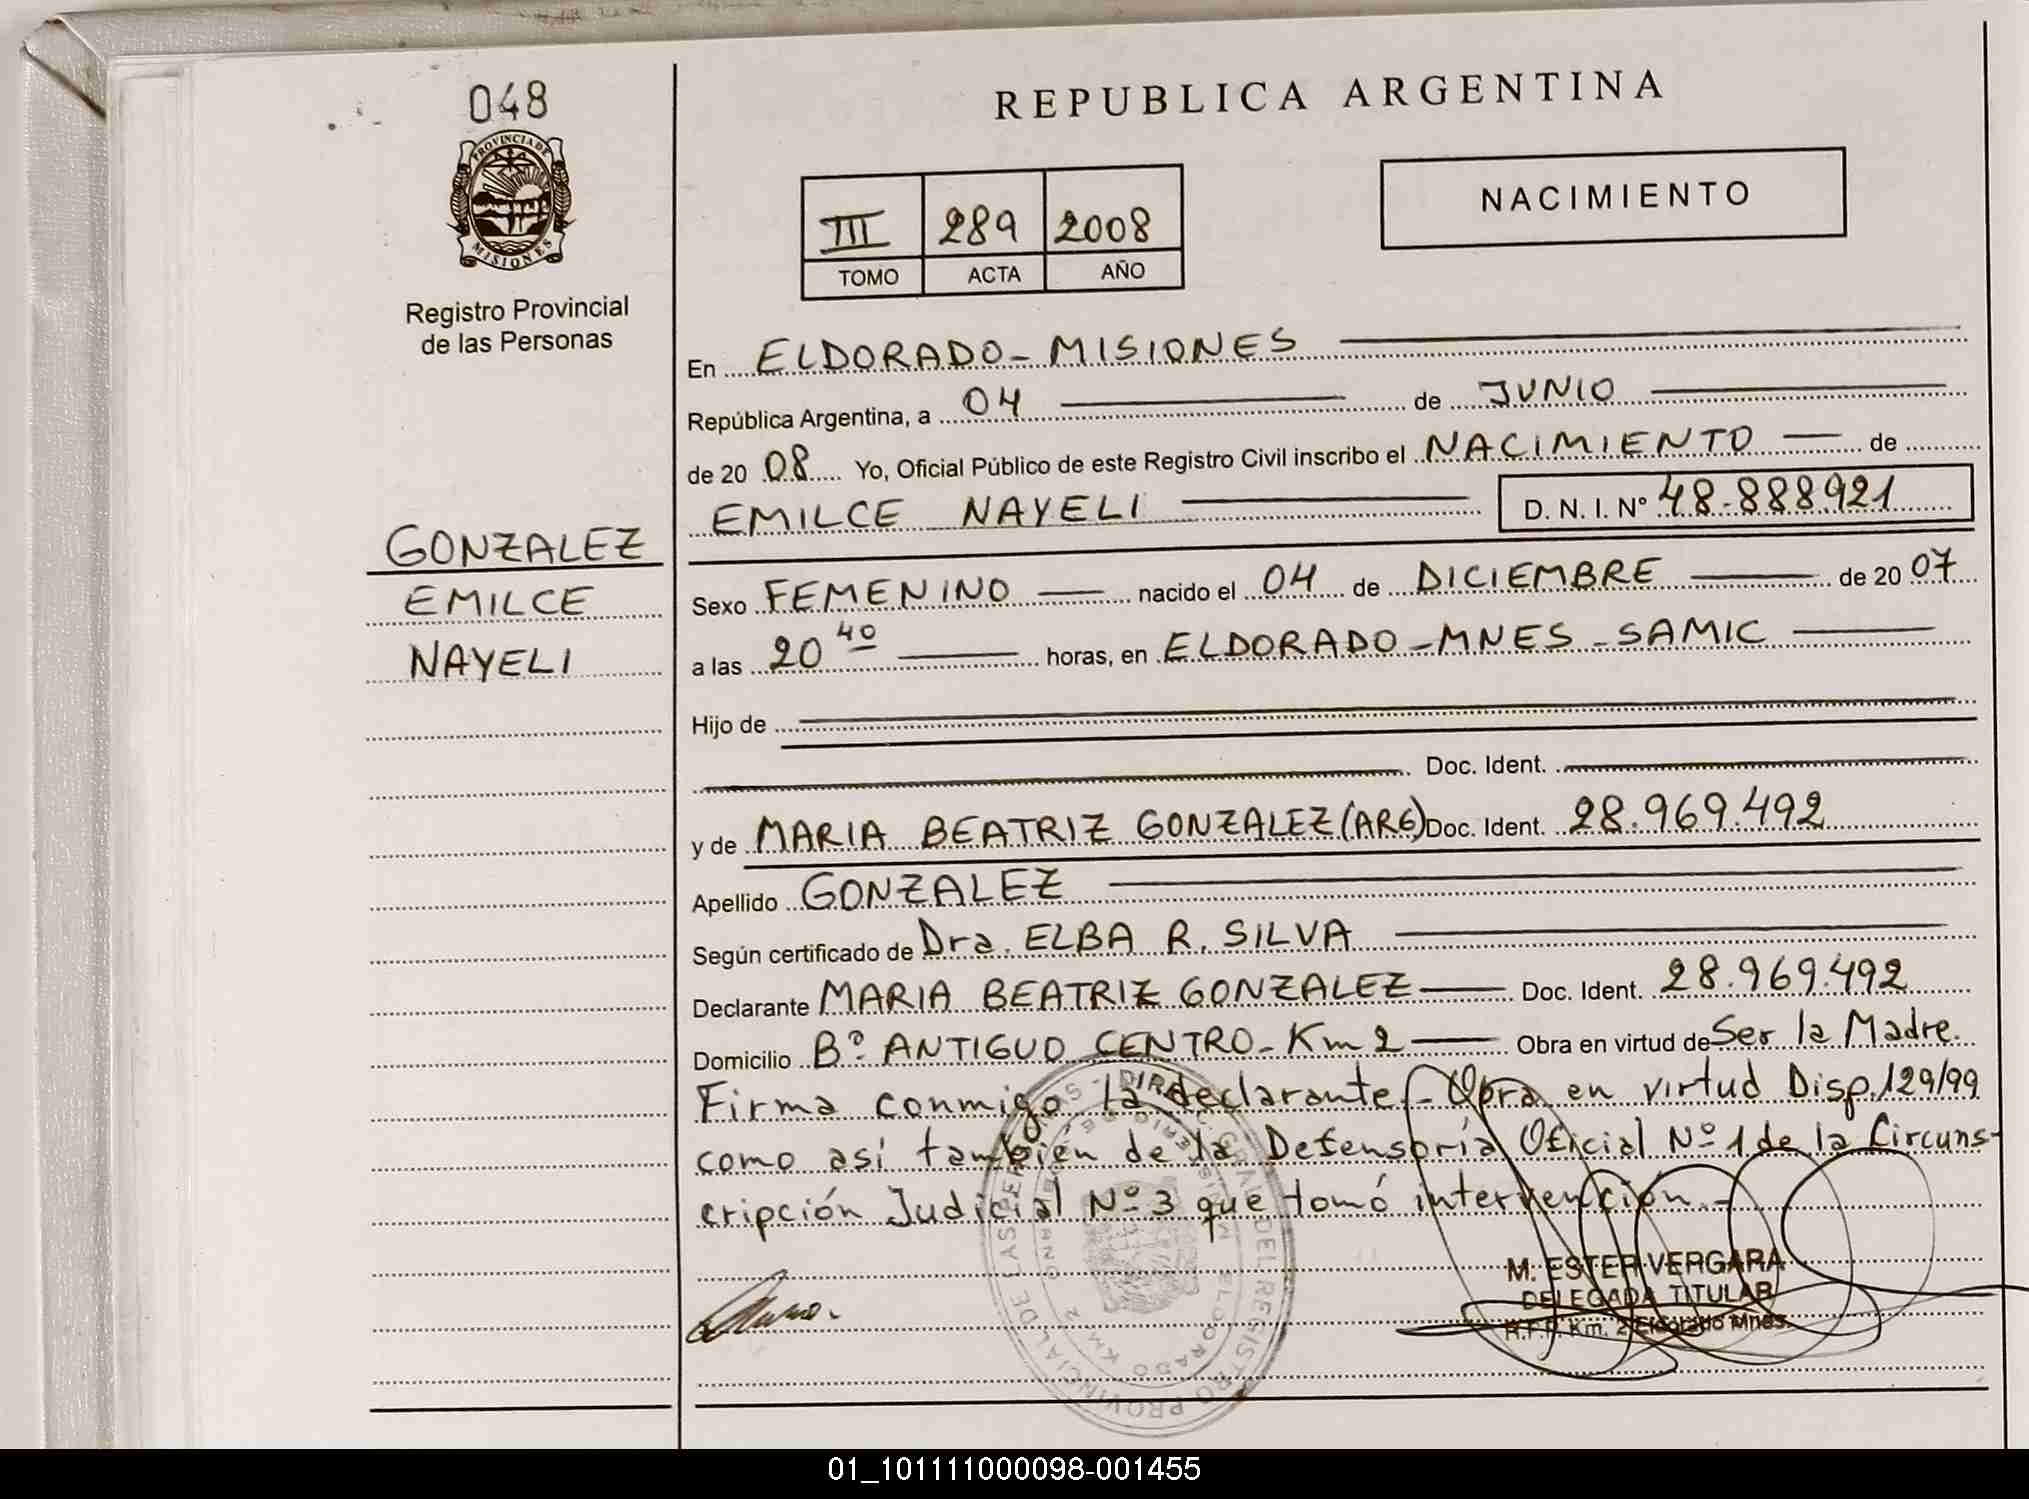 048
PROVINCIA DE
MISIONES
Registro Provincial
de las Personas
GONZALEZ
EMILCE
NAYELI
REPUBLICA ARGENTINA
III 289 2008
TOMO ACTA AÑO
NACIMIENTO
En ELDORADO - MISIONES
República Argentina, a 04 de JUNIO
de 2008 Yo, Oficial Público de este Registro Civil inscribo el NACIMIENTO de
EMILCE NAYELI D. N. I. Nº 48.888.921
Sexo FEMENINO nacido el 04 de DICIEMBRE de 2007
a las 20 40 horas, en ELDORADO - MNES - SAMIC
Hijo de
Doc. Ident.
y de MARIA BEATRIZ GONZALEZ (ARG) Doc. Ident. 28.969.492
Apellido GONZALEZ
Según certificado de Dra. ELBA R. SILVA
Declarante MARIA BEATRIZ GONZALEZ Doc. Ident. 28.969.492
Domicilio Bº ANTIGUO CENTRO - Km 2 Obra en virtud de Ser la Madre.
Firma conmigo la declarante - Obra en virtud Disp. 129/99
como así también de la Defensoría Oficial Nº 1 de la Circuns-
cripción Judicial Nº 3 que tomó intervención.-
M. ESTER VERGARA
DELEGADA TITULAR
R.P.P. Km. 2 Eldorado Mnes.
01_101111000098-001455